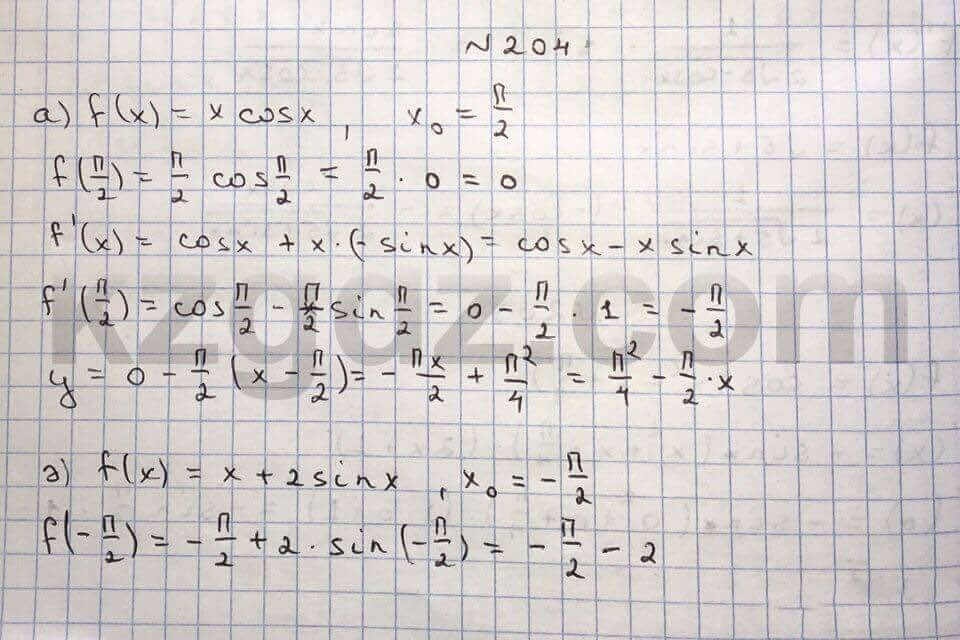 N 204
а) f(x) = x cosx, x₀ = π/2
f(π/2) = π/2 cos π/2 = π/2 · 0 = 0
f'(x) = cosx + x·(- sinx) = cosx - x sinx
f'(π/2) = cos π/2 - π/2 sin π/2 = 0 - π/2 · 1 = - π/2
y = 0 - π/2 (x - π/2) = - πx/2 + π²/4 = π²/4 - π/2 · x
kzgdz.com
э) f(x) = x + 2sinx, x₀ = - π/2
f(- π/2) = - π/2 + 2 · sin (- π/2) = - π/2 - 2